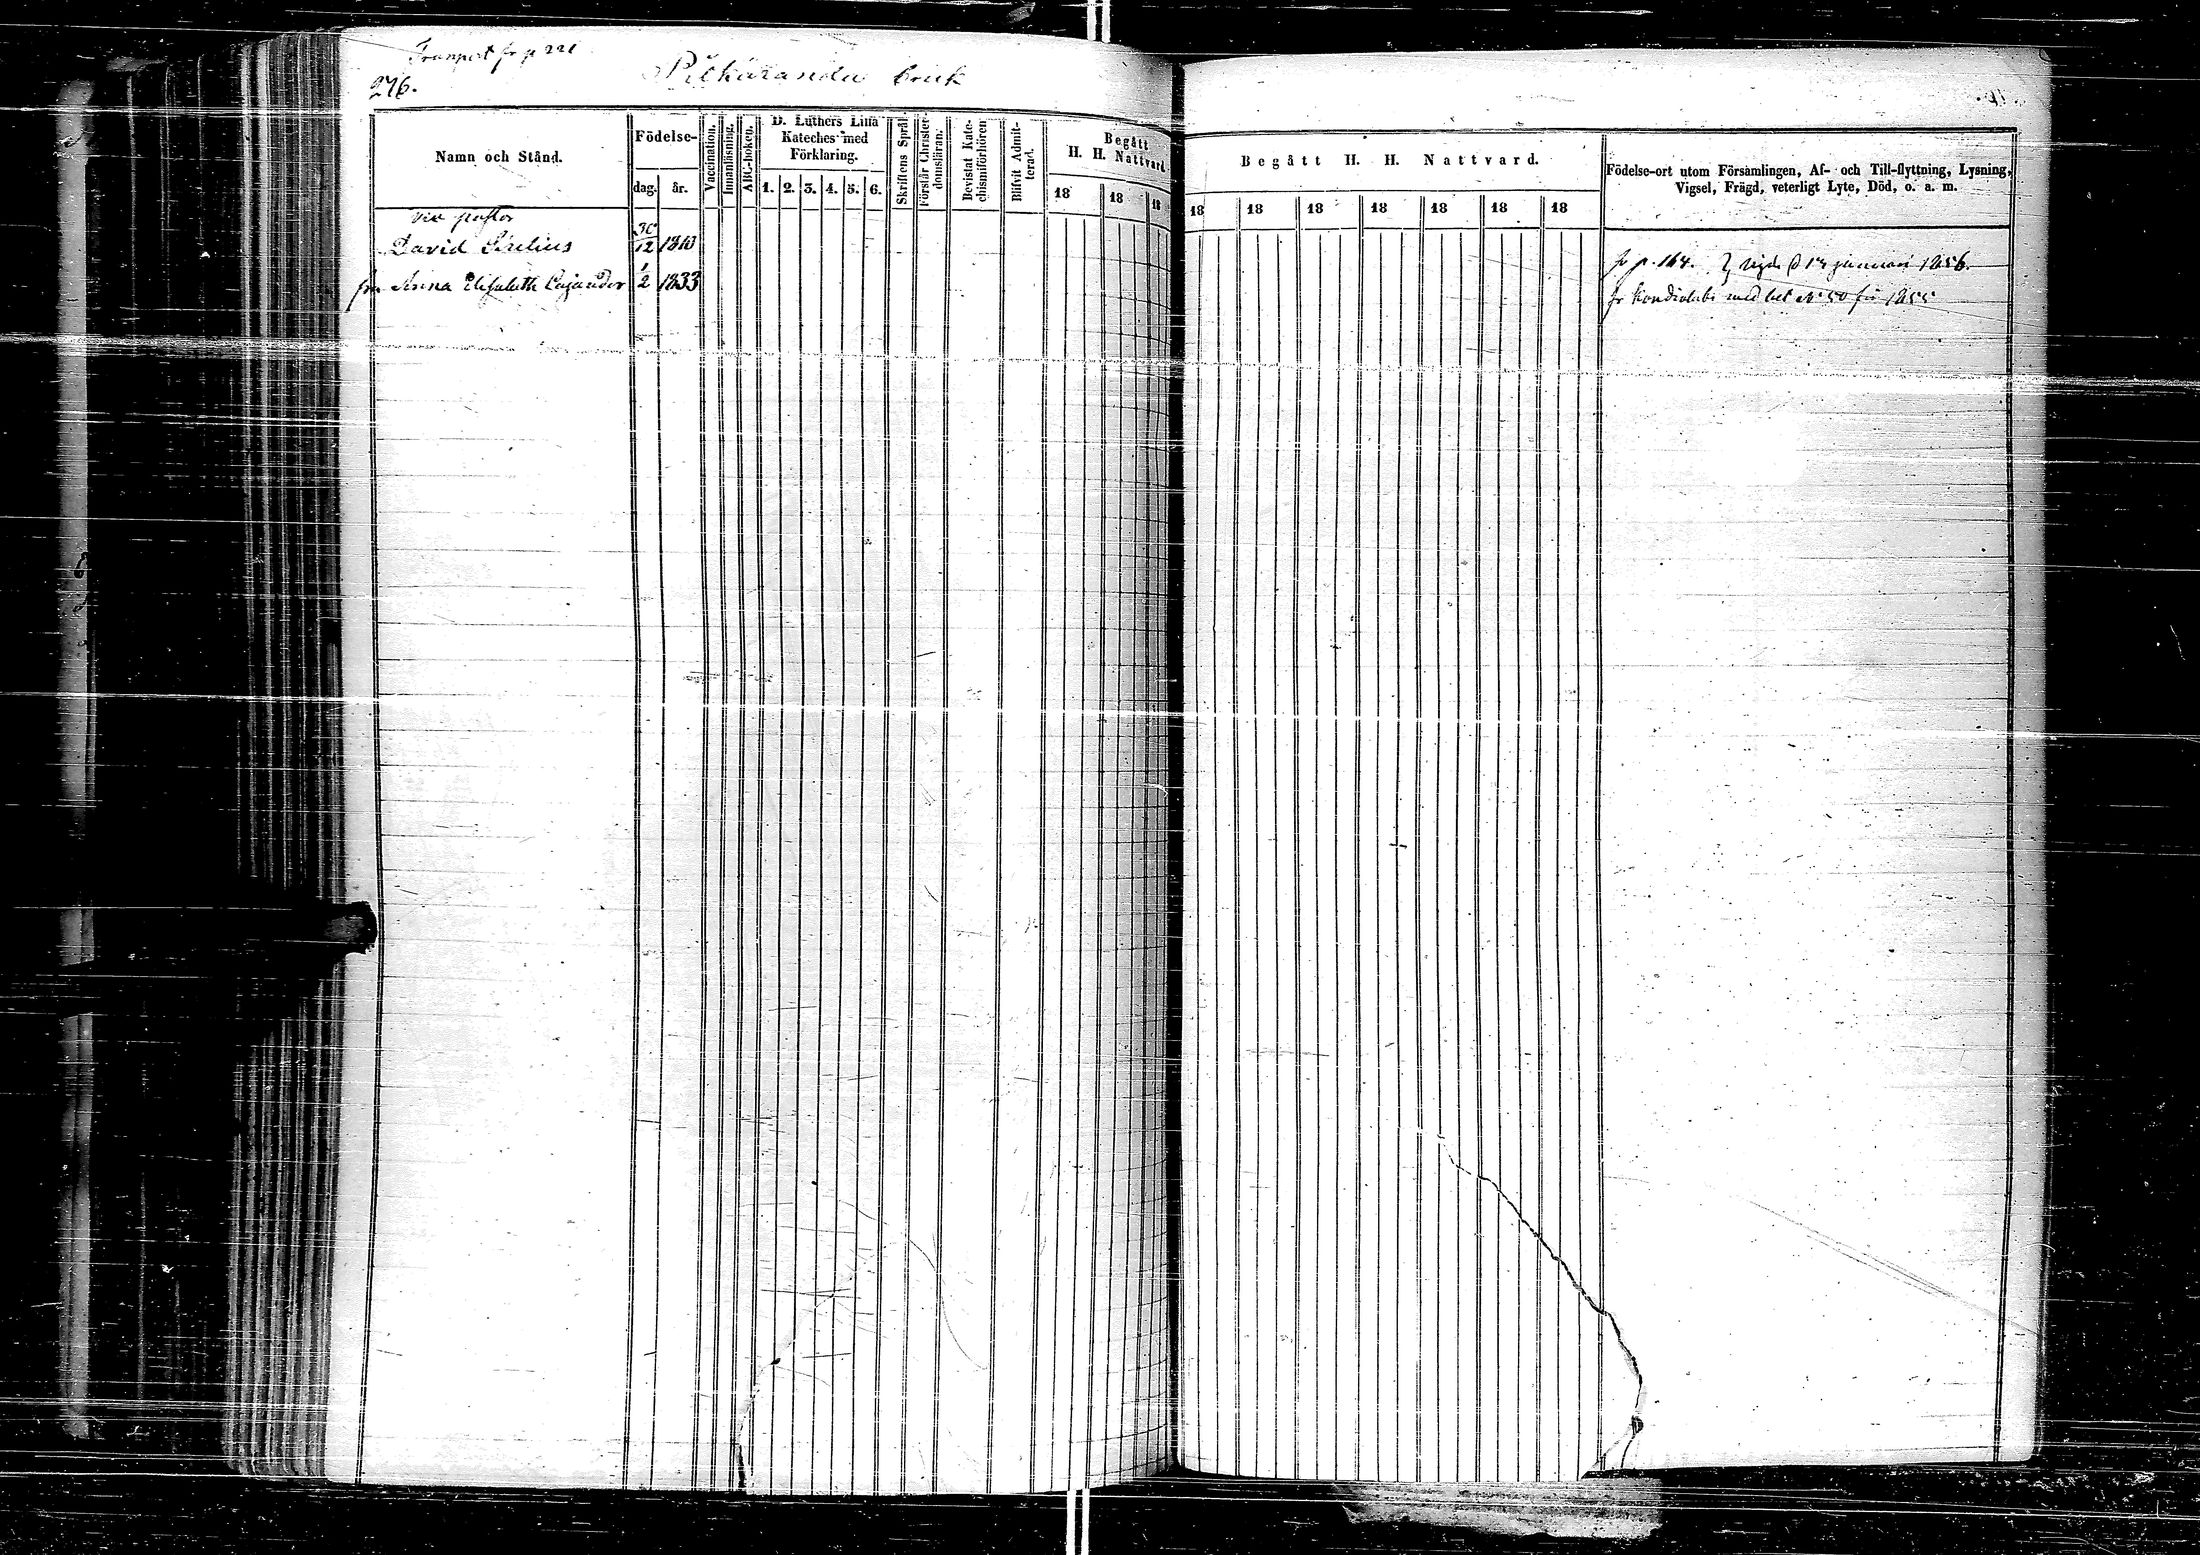 Transport fr p 221
276.
Pitkäranda bruk
Namn och Stånd.
Födelse-
dag.
år.
Vaccination.
Innanläsning.
ABC-boken.
D. Luthers Lilla
Kateches med
Förklaring.
1. 2. 3. 4. 5. 6.
Skriftens Språk
Förstår Christen-
domsläran.
Bevistat Kate-
chismiförhören
Blifvit Admit-
terad.
Begått
H. H. Nattvard
18 18 18
Begått H. H. Nattvard.
18 18 18 18 18 18 18
Födelse-ort utom Församlingen, Af- och Till-flyttning, Lysning,
Vigsel, Frägd, veterligt Lyte, Död, o. a. m.
vice pastor
David Sirelius 30/12 1810
fr p. 164. vigde d 14 januari 1856.
fru Anna Elisabeth Cajander 1/2 1833
fr Kondiolaks med bet N 50 för 1855